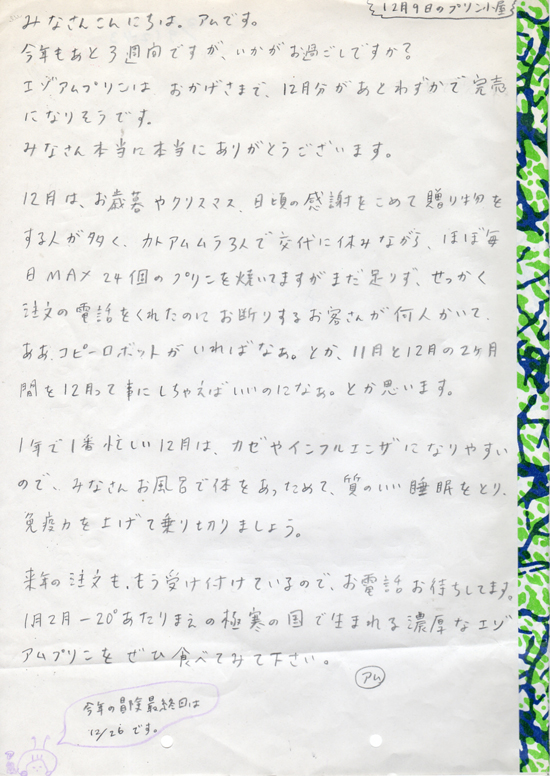 12月9日のプリン小屋
みなさんこんにちは。アムです。
今年もあと3週間ですが、いかがお過ごしですか?
エゾアムプリンは、おかげさまで、12月分があとわずかで完売
になりそうです。
みなさん本当に本当にありがとうございます。
12月は、お歳暮やクリスマス、日頃の感謝をこめて贈り物を
する人が多く、カトアムムラ3人で交代に休みながら、ほぼ毎
日MAX24個のプリンを焼いてますがまだ足りず、せっかく
注文の電話をくれたのにお断りするお客さんが何人かいて、
ああ、コピーロボットがいればなあ。とか、11月と12月の2ヶ月
間を12月って事にしちゃえばいいのになぁ。とか思います。
1年で1番忙しい12月は、カゼやインフルエンザになりやすい
ので、みなさんお風呂で体をあっためて、質のいい睡眠をとり、
免疫力を上げて乗り切りましょう。
来年の注文も、もう受け付けているので、お電話お待ちしてます。
1月2月-20°あたりまえの極寒の国で生まれる濃厚なエゾ
アムプリンをぜひ食べてみて下さい。
アム
今年の冒険最終回は
12/26です。